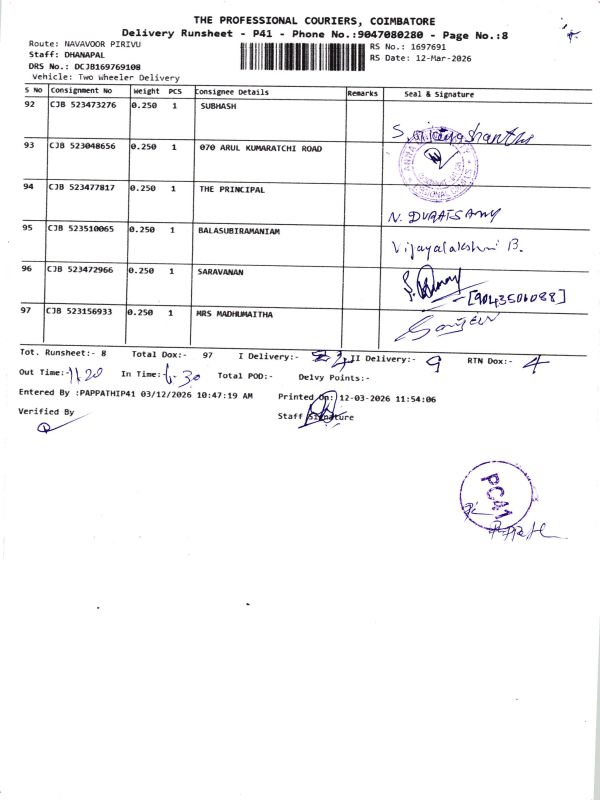 THE PROFESSIONAL COURIERS, COIMBATORE
Delivery Runsheet - P41 - Phone No.:9047080280 - Page No.:8
Route: NAVAVOOR PIRIVU
RS No.: 1697691
Staff: DHANAPAL
RS Date: 12-Mar-2026
DRS No.: DCJB169769108
Vehicle: Two Wheeler Delivery
S No Consignment No Weight PCS Consignee Details Remarks Seal & Signature
92 CJB 523473276 0.250 1 SUBHASH
93 CJB 523048656 0.250 1 070 ARUL KUMARATCHI ROAD
94 CJB 523477817 0.250 1 THE PRINCIPAL
N. DURAISAMY
95 CJB 523510065 0.250 1 BALASUBIRAMANIAM
Vijayalakshmi B.
96 CJB 523472966 0.250 1 SARAVANAN
[9043506088]
97 CJB 523156933 0.250 1 MRS MADHUMAITHA
Tot. Runsheet:- 8 Total Dox:- 97 I Delivery:- II Delivery:- 9 RTN Dox:- 4
Out Time:- 11.20 In Time:- 6.30 Total POD:- Delvy Points:-
Entered By :PAPPATHIP41 03/12/2026 10:47:19 AM Printed On: 12-03-2026 11:54:06
Verified By
Staff Signature
PC41